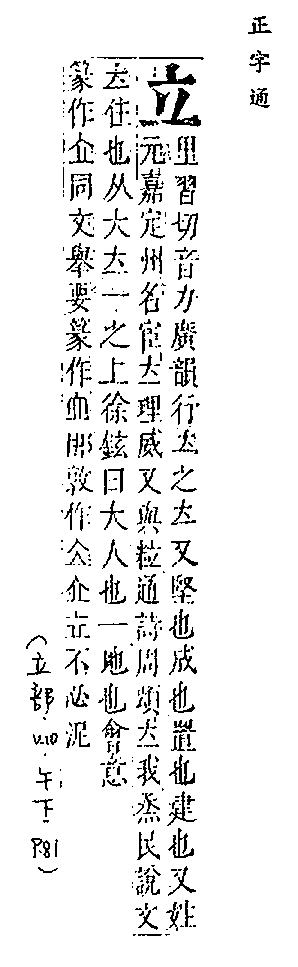 正字通
立
里習切音力廣韻行立之立又堅也成也置也建也又姓
元嘉定州名宦立理威又與粒通詩周頌立我烝民說文
立住也从大立一之上徐鉉曰大人也一地也會意
篆作同文舉要篆作邢敦作立不必泥
(立部.午下.P81)